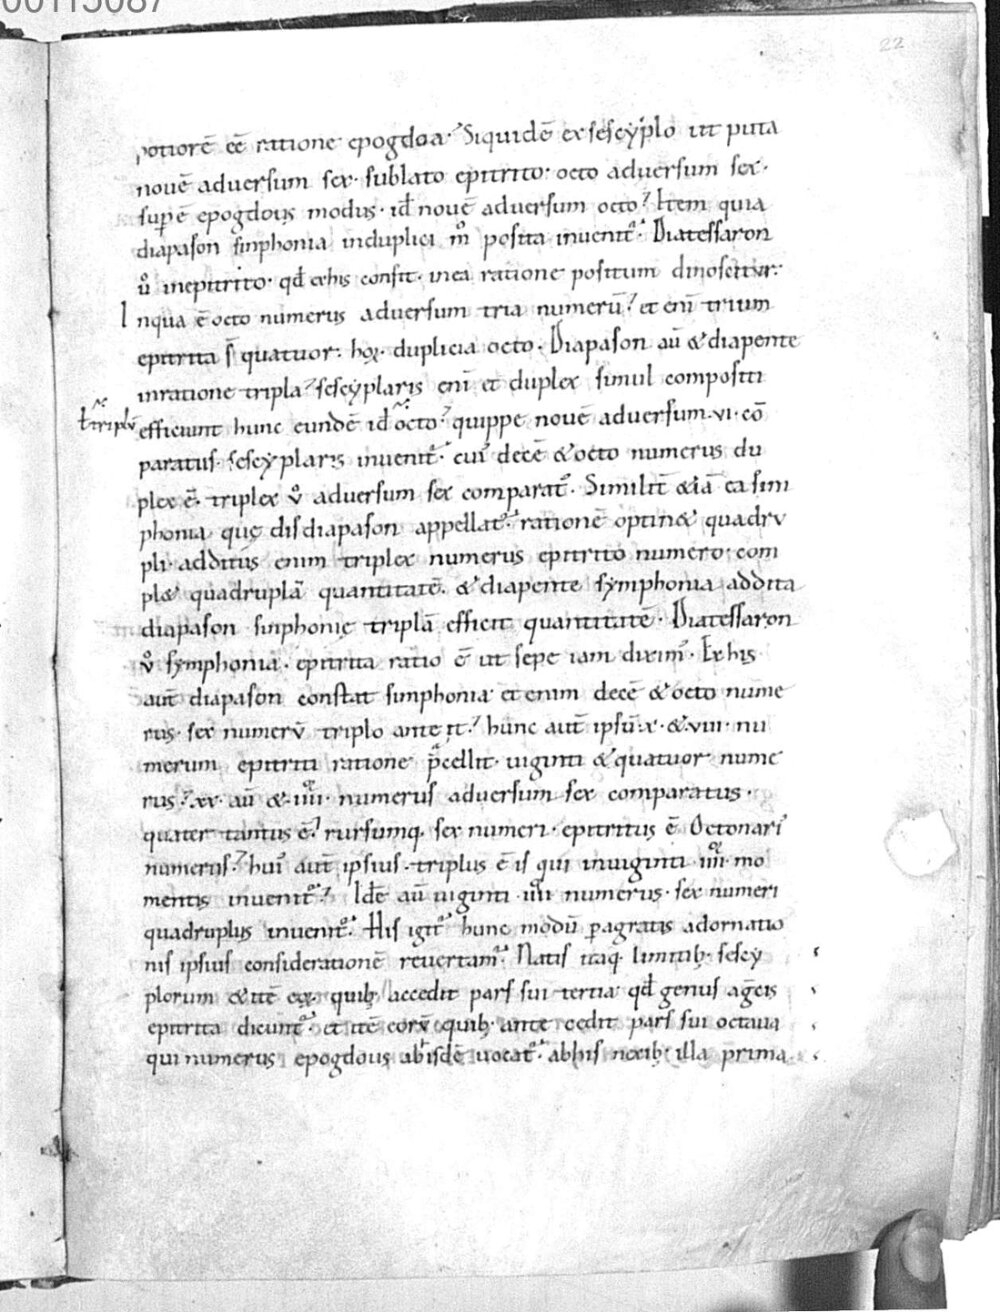 00115087
22
potiorē eē ratione epogdoa. Siquidē ex sescyplo ut puta
nouē aduersum sex. sublato epitrito. octo aduersum sex.
supē epogdouς modus. id̄ nouē aduersum octo. Item quia
diapason sinphonia induplici m̊ posita inuenit᷑. Diatessaron
ů inepitrito. qd̄ exhis confit. inea ratione positum dinoscitur.
Inqua ē octo numerus aduersum tria numerū. et eni trium
epitrita s̄ quatuor. hoꝝ. duplicia octo. Diapason aū &diapente
inratione tripla. sescyplaris eni et duplex simul compositi
ł triplū
efficiunt hunc eundē id̄ octo. quippe nouē aduersum .vi. cō
paratus. sescyplaris inuenit᷑. cui decē &octo numerus du
plex ē. triplex ů aduersum sex comparat᷑. Similit̄ &iā ea sim
phonia quę disdiapason appellat᷑. rationē optin& quadru
pli. additus enim triplex numerus epitrito numero. com
pl& quadruplā quantitatē. &diapente symphonia addita
diapason sinphonię triplā efficit quantitatē. Diatessaron
ů symphonia. epitrita ratio ē ut sepe iam dixim᷒. Exhis
aut̄ diapason constat simphonia et enim decē &octo nume
rus. sex numerū triplo ante it. hunc aut̄ ipsū .x. &.viii. nu
merum epitriti ratione p̄cellit. uiginti &quatuor nume
rus. xx. aū &.iiii. numerus aduersum sex comparatus.
quater tantus ē. rursumq. sex numeri. epitritus ē Octonari
numerus. hui᷒ aut̄ ipsius. triplus ē is qui inuiginti iiii. mo
mentis inuenit᷑. Idē aū uiginti .iiii numerus. sex numeri
quadruplus inuenit᷑. His igit᷑ hunc modū pagratis adornatio
nis ipsius considerationē reuertam᷑. Natis itaq. limitib; sescy
plorum &itē eoꝝ. quib; accedit pars sui tertia qd̄ genus agēis
epitrita dicunt᷑. et itē eorū quib; ante cedit pars sui octaua
qui numerus epogdous abisdē uocat᷑. abhis nexib; illa prima.